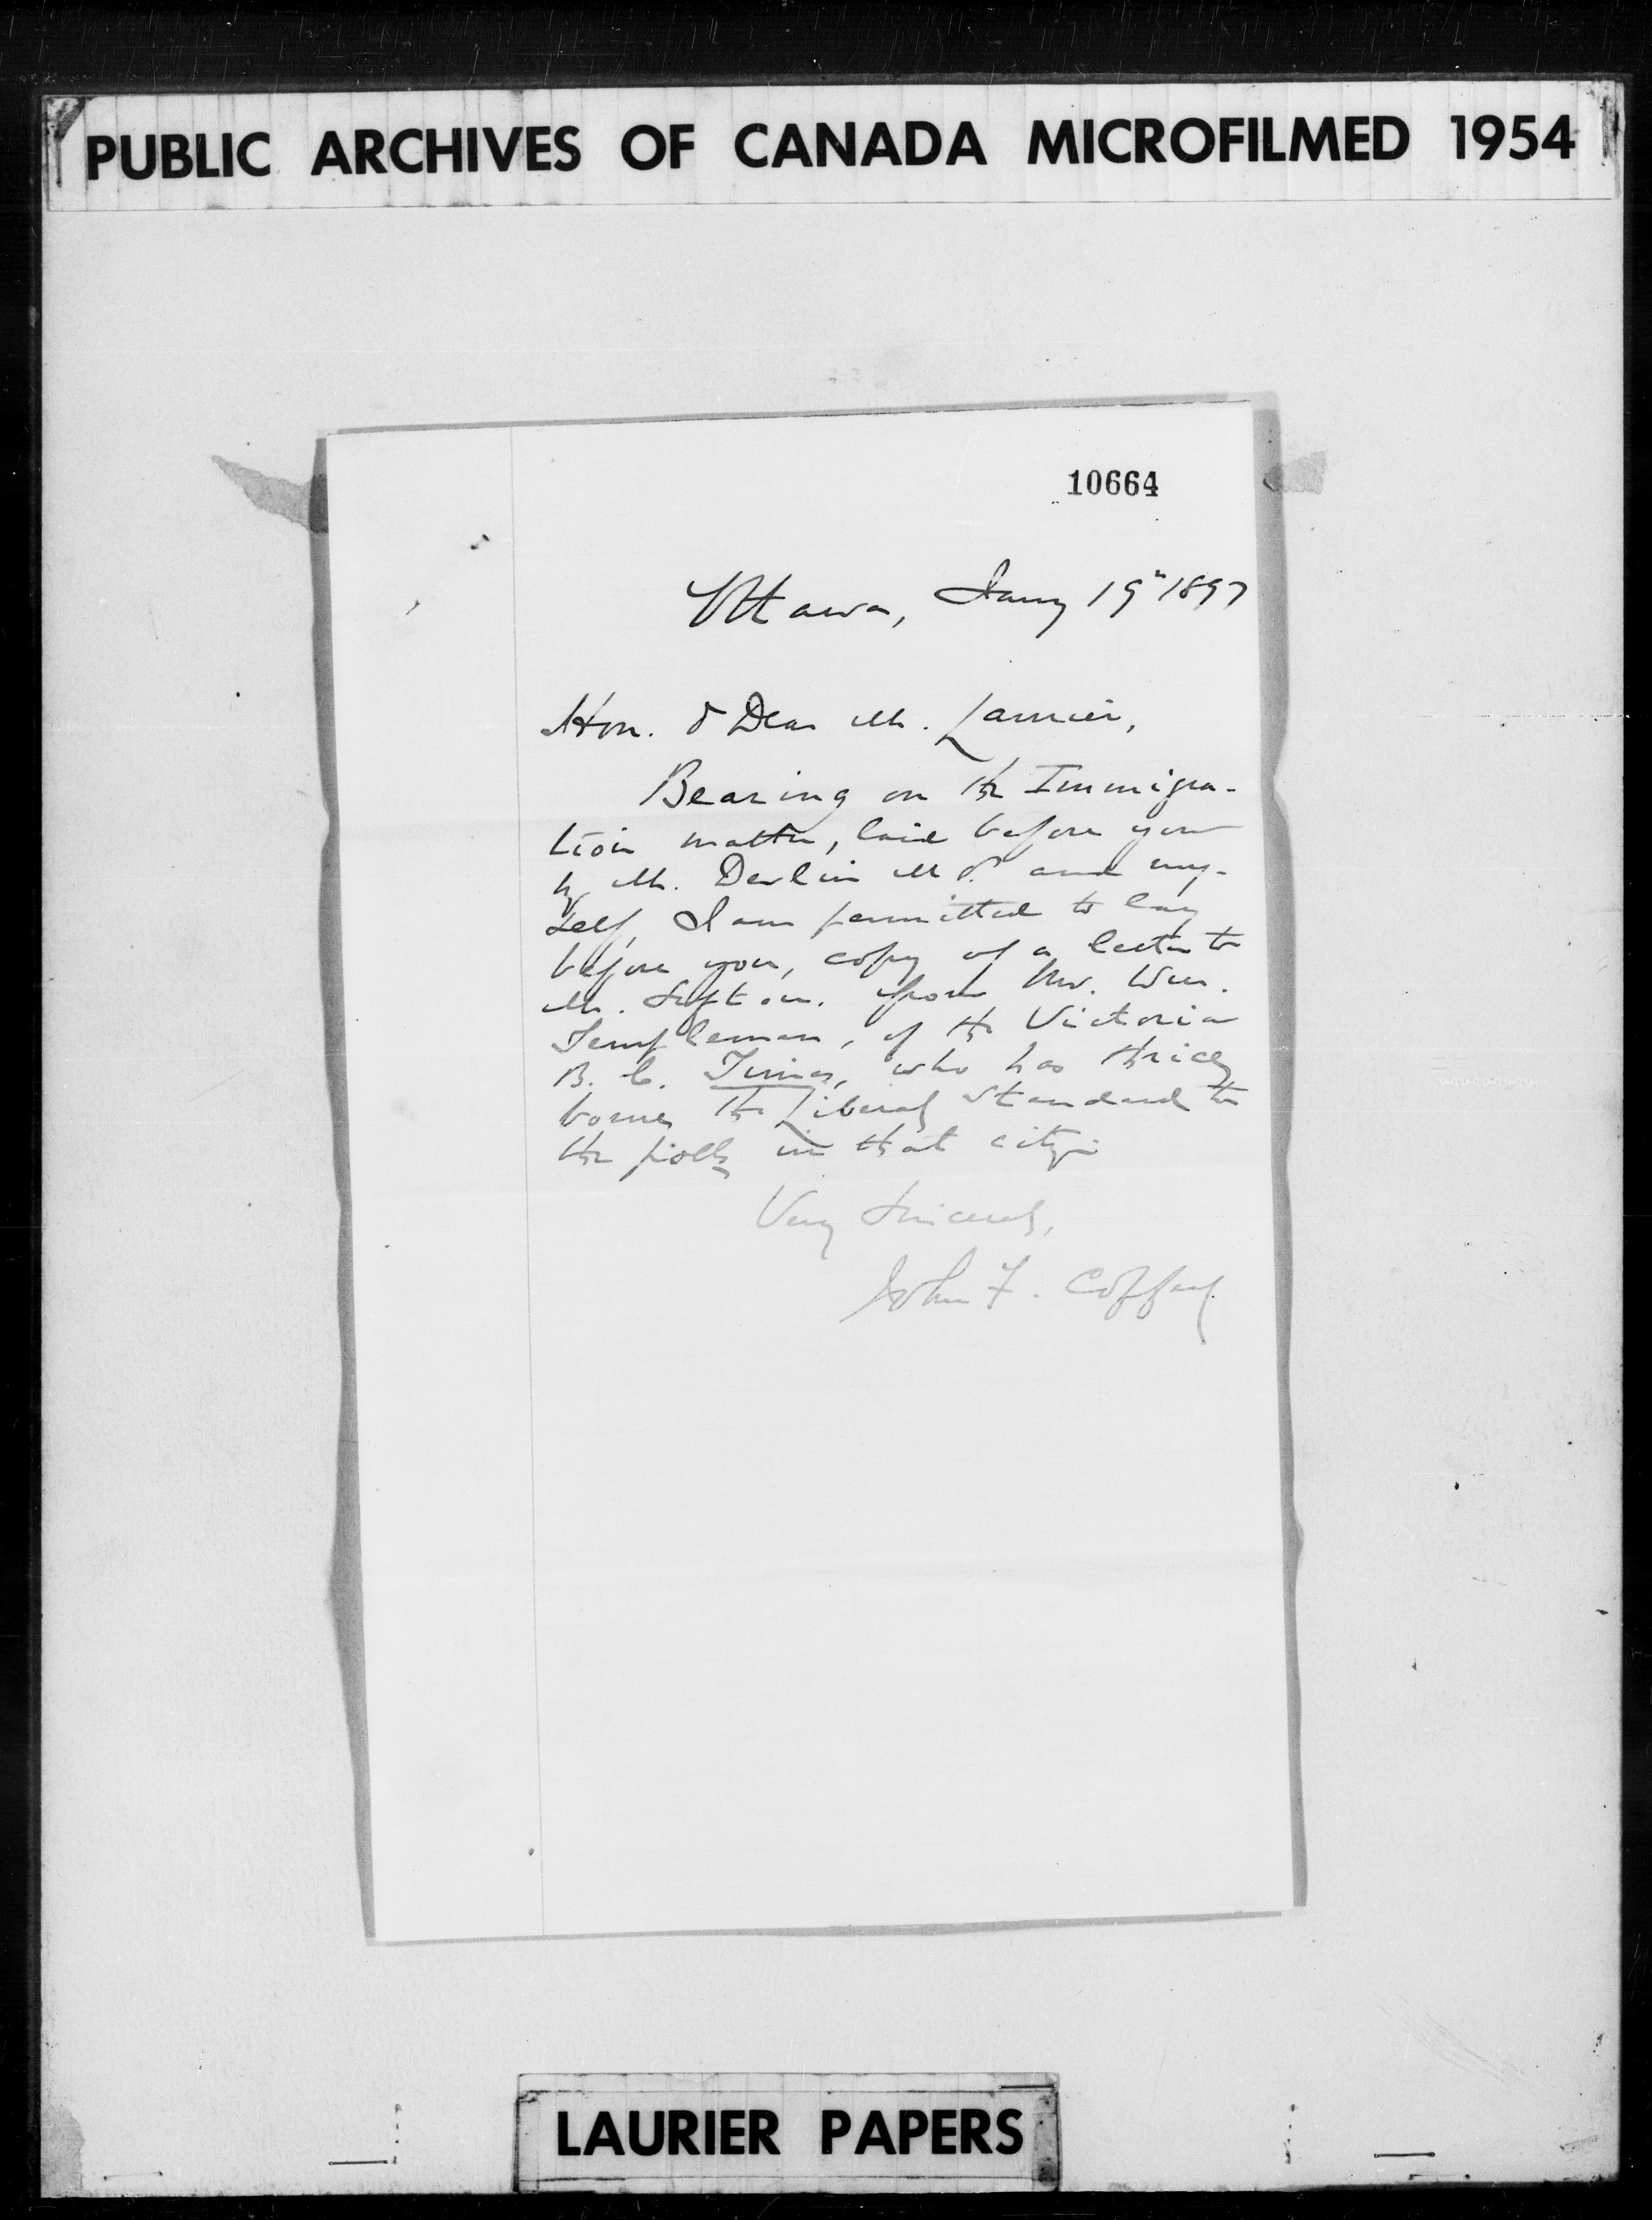 PUBLIC ARCHIVES OF CANADA MICROFILMED 1954
10664
Ottawa, Jany 19th 1897
Hon. & Dear Mr. Laurier,
Bearing on the Immigra-
tion matter, laid before you
by Mr. Devlin M.P. and my-
self, I am permitted to lay
before you, copy of a letter to
Mr. Sifton. from Mr. Wm.
Templeman, of the Victoria
B. C. Times, who has thrice
borne the Liberal standard to
the polls in that city.
Very Sincerely,
John F. Coffey
LAURIER PAPERS